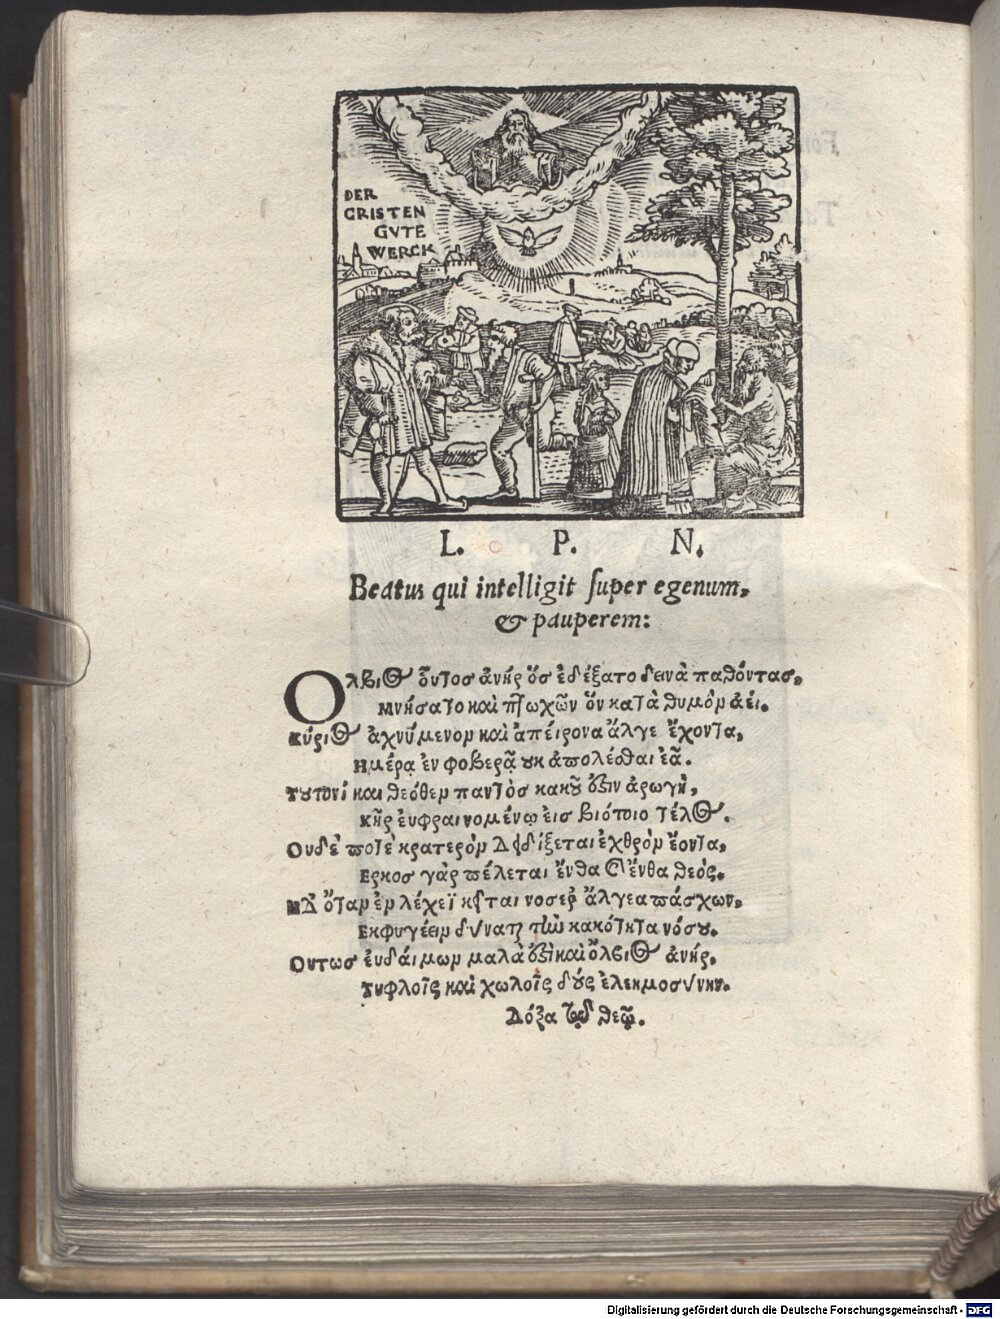 DER
CRISTEN
GVTE
WERCK
L. P. N.
Beatus qui intelligit super egenum,
& pauperem:
Ολβιος οὗτος ἀνὴρ ὅς ἐδέξατο δεινὰ παθόντας,
μνήσατο καὶ πτωχῶν ὃν κατὰ θυμὸν ἀεί.
κύριος ἀχνύμενον καὶ ἀπείρονα ἄλγε ἔχοντα,
Ημέρᾳ ἐν φοβερᾷ ουκ ἀπολέσθαι ἐᾷ.
Τουτονί και θεόθεν παντὸς κακοῦ ὅξιν ἀρωγὴ,
κῆρ ἐυφραινομένῳ ἐις βιότοιο τέλος.
Ουδέ ποτε κρατερὸν ἐχθρὸν ἔοντα,
Ερκος γὰρ πέλεται ἔνθα καὶ ἔνθα θεός.
ὅταν ἐν λέχεϊ κεῖται νοσερῷ ἄλγεα πάσχων,
Εκφυγέειν δύναται τὴν κακότητα νόσου.
Ουτως ἐυδάιμων μαλὰ καὶ ὄλβιος ἀνήρ,
Τυφλοῖς καὶ χωλοῖς δοὺς ἐλεημοσύνην.
Δόξα τῷ θεῷ.
Digitalisierung gefördert durch die Deutsche Forschungsgemeinschaft - DFG